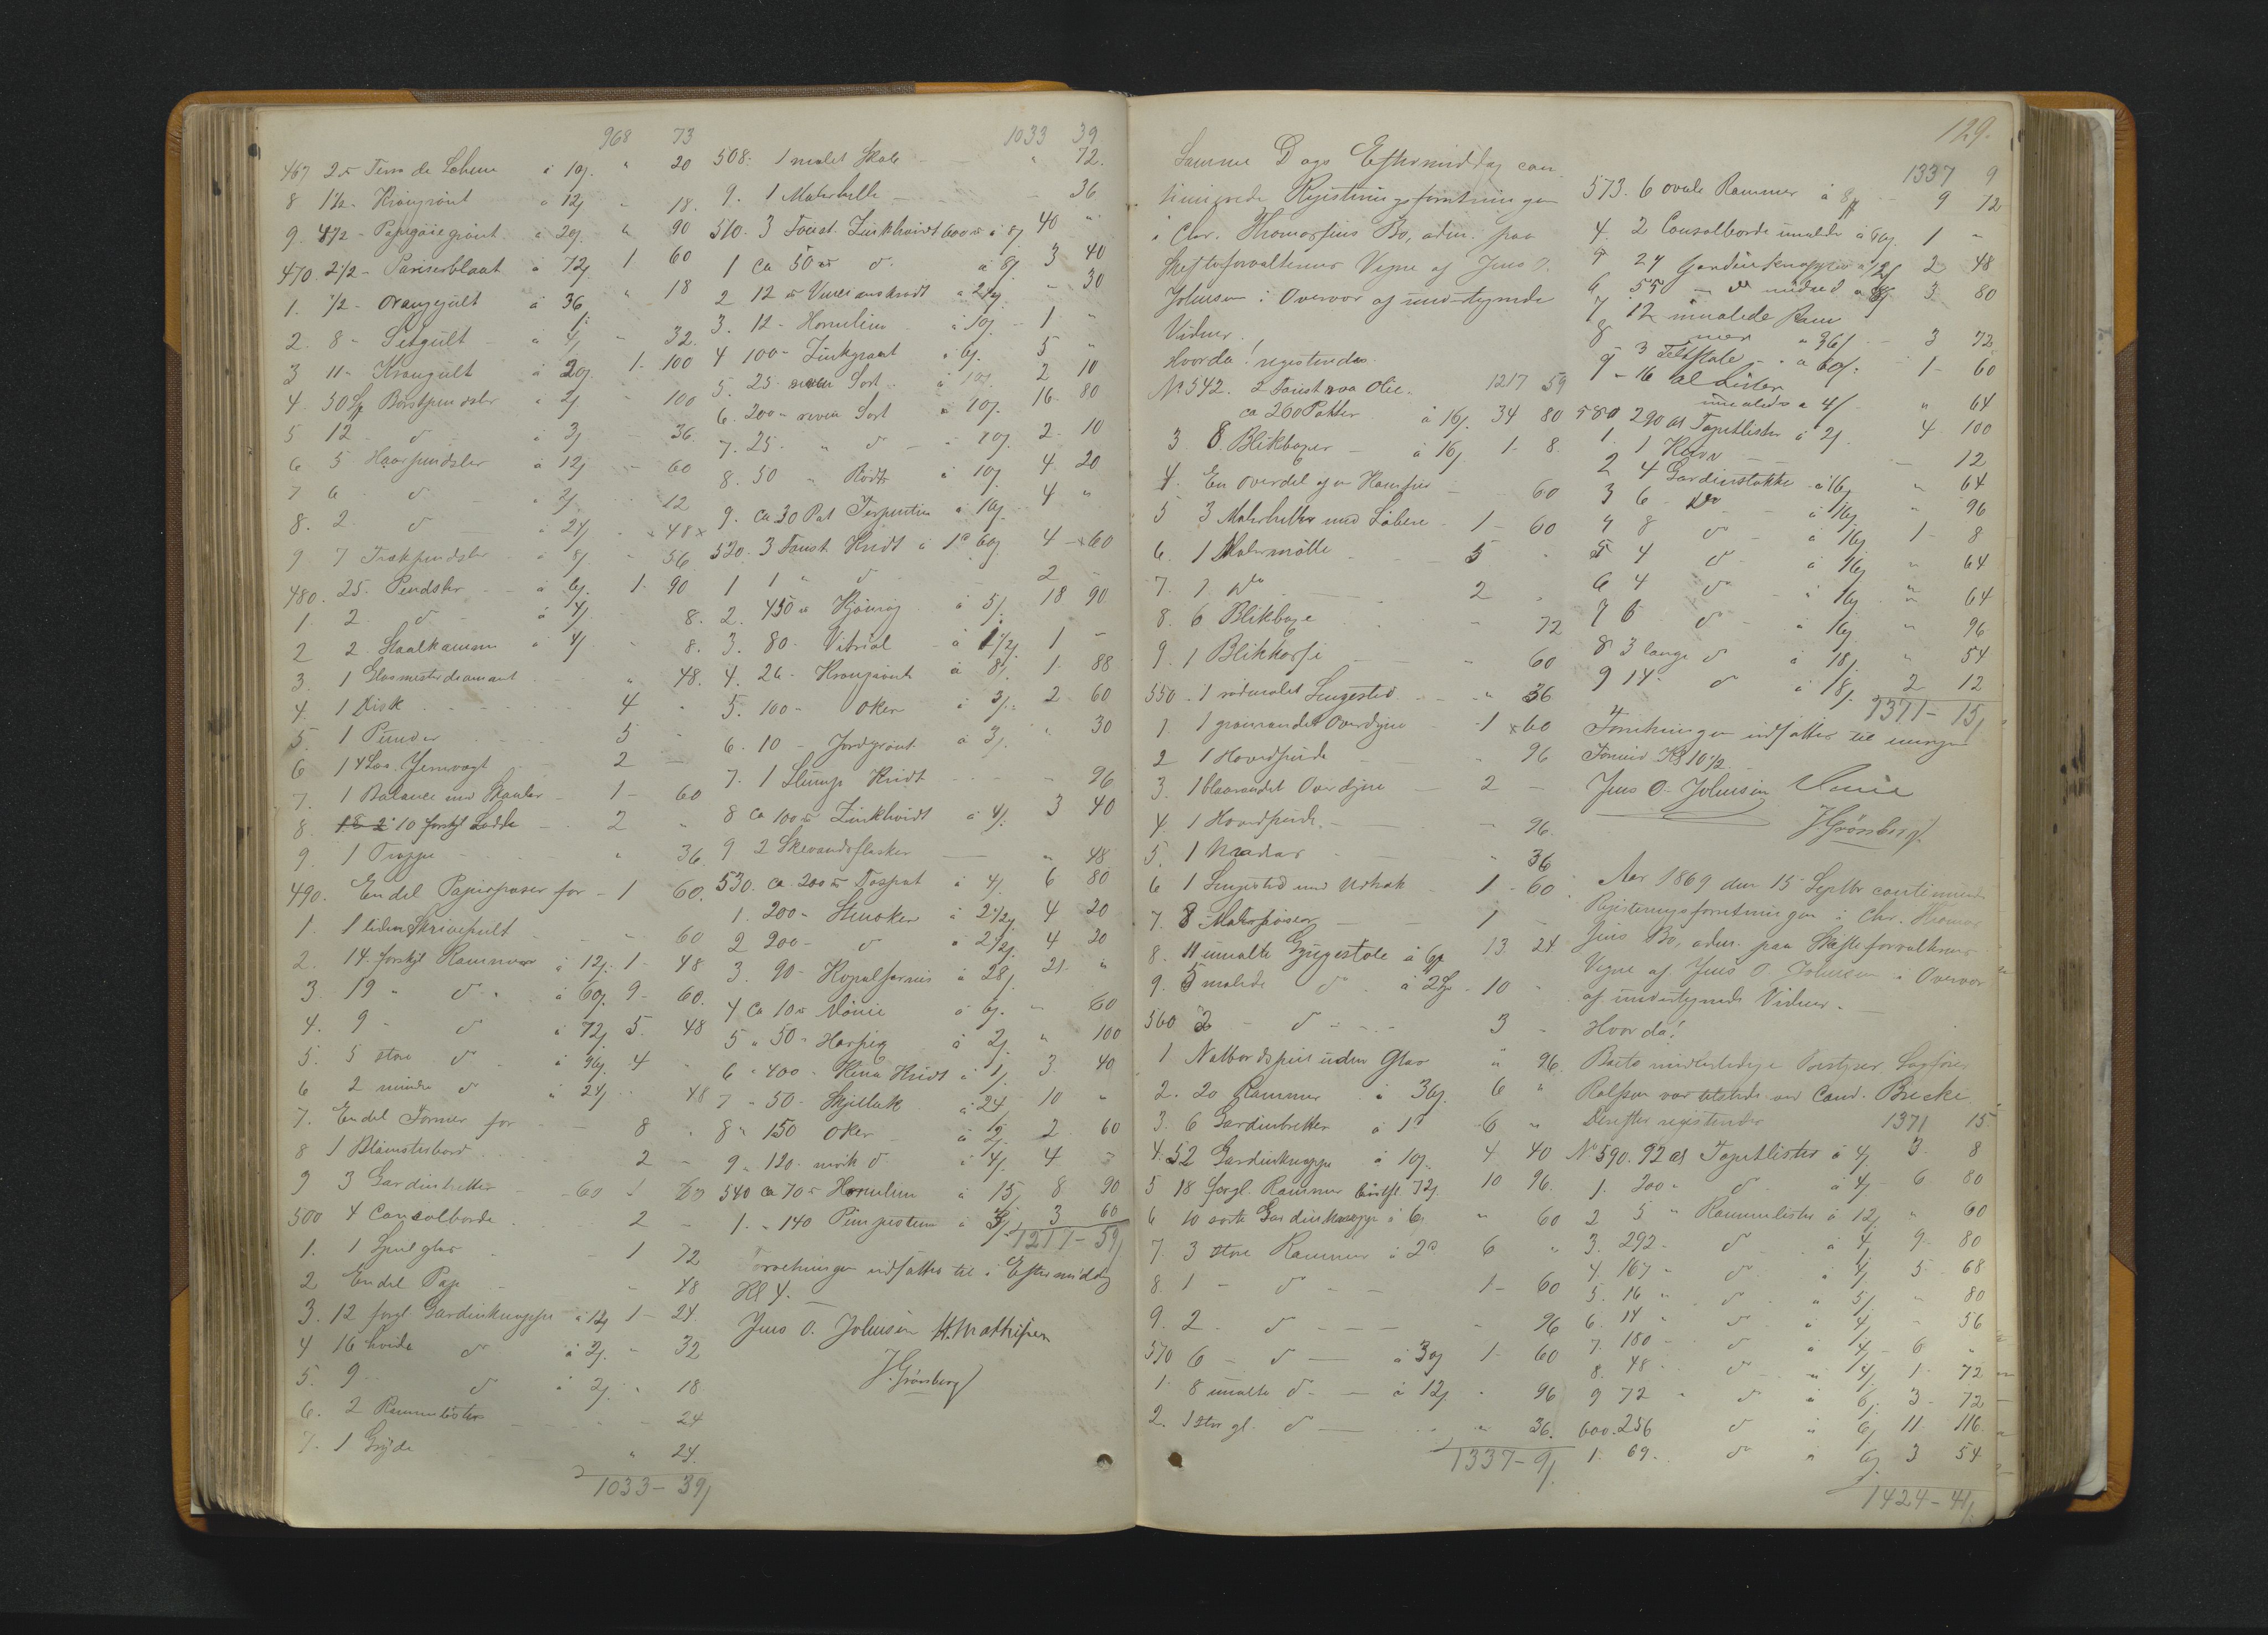 968 73
467 25 Terra de à 10 " 20
8 1½ - Kromgrönt à 12 " 18.
9. 4½ - Papegoiegrönt à 20 " 90
470. 2½ - Pariserblaat à 72 1 60
1. ½ - Orangegult à 36 " 18
2. 8 - à 4 " 32.
3 11 - Kromgult à 20 1. 100
4. 50 Borstpendsler à 2 100
5 12 - d à 3 36.
6 5 Haarpendsler à 12 60
7 6 - d - à 2 12
8. 2 d à 24 48
9 7 Trækpendsler à 8 56
480. 25. Pendsler - à 6 1. 90
1. 2 d - à 4 8.
2 2. Staalkamme à 4 8.
3. 1 Glasmesterdiamant " 48.
4. 1 Disk 4 "
5. 1 Punder 5 "
6 1 Jernvægt 2 -
7. 1 Balance med Skaaler 1 - 60
8 10 forskjl Lodde 2 "
9. 1 Trappe " 36.
490. En del Papirsposer for - 1 60.
1. 1 liden Skrivepult - 60
2. 14. forskjl Rammer à 12. 1 - 48
3. 19 " d " à 60 9 - 60.
4. 9 - d à 72 5. 48
5. 5 store d à 96 4 "
6 2 mindre d à 24 48
7. En del Former for 8 "
8 1 Blomsterbord 2 -
9 3 Gardinbretter - 60
500 4 Consolborde 2 -
1. 1 Speilglas - 1 72
2 En del Pap " 48
3. 12 forgl Gardinknappe à 12 1 - 24.
4 16 hvide d à 2. " 32
5. 9 - d à 2. " 18
6. 2 Rammelister 24
7. 1 Gryde " 24.
1033 - 39
1033 39
508. 1 malet Skab " 72.
9. 1 Malerhelle - 36
510. 3 Foust. Zinkhvidt 600 à 8 40 "
1 Ca 50 d. à 8 3 40
2 12 à 2½ - 30
3. 12 - à 10 - 1 "
4 100 - Zinkgraat à 6. 5 "
5. 25 - Sort - à 10 2 10
6. 200 - reven Sort à 10. 16. 80
7. 25. " d - à 10 2. 10
8. 50 " Rödt à 10 4. 20
9. Ca 30 Pot Terpentin à 10 4 "
520. 3 Foust. Kridt à 1 60 4 - 60
1 1 " d 2 -
2. 450 Kjönrög à 5. 18 90
3. 80 - Vitriol - à 1½ 1 -
4. 26 - Kromgrönt à 8 1. 88
5. 100 - Oker à 3. 2. 60
6. 10 - Jordgrönt à 3. " 30
7. 1 Slump Kridt - 96
8 Ca 100 Zinkhvidt à 4. 3 40
9 2 Skevandsflasker " 48
530. Ca. 200 à 4 6 80
1. 200 - Steenoker à 2½ 4 20
2 200 - d à 2½ 4 20
3. 90 - Kopalfernis à 28 21. "
4 Ca 10 Mönie à 6. - 60
5 " 50 - Harpix à 2. " 100
6 " 400 - Kridt à 1. 3. 40
7 " 50 - Skjellak à 24 10 "
8 " 150 Oker à 2. 2. 60
9 " 120 - mörk d. à 4. 4 -
540 Ca 70 à 15 8 90
1. " 140 Pimpsten à 3 60
1217 - 59
Forretningen udsattes til i Eftermiddag
Kl 4. -
Jens O. Johnsen H. Mathisen
J. Grönberg
129.
Samme Dags Eftermiddag con-
tinuerede Registreringsforretningen
i Chr. Thomassens Bo, adm. paa
Skifteforvalterens Vegne af Jens O.
Johnsen i Overvær af undertegnede
Vidner.
Hvorda! registreredes.
No 542. 2 Foust raa Olie. 1217 59
ca 260 Potter à 16. 34 80
3 8. Blikboxer - à 16 1. 8.
4. En Overdel af en 60
5 3 Malerheller med Löbere - 1 - 60
6. 1 Malermölle - 5 "
7. 1 do 2 "
8. 6 Blikboxe - 72
9. 1 Blikkasse - " 60
550. 1 rödmalet Sengested " 36
1. 1 grönrandet Overdyne - 1 60
2 1 Hovedpude 96
3. 1 blaarandet Overdyne - 2 -
4. 1 Hovedpude. - 96.
5. 1 Madras " 36
6 1 Sengested med Udtræk 1 - 60
7. 8 - 1 -
8. 11 umalte Gyngestole à 13. 24
9. 5 malede d à 2 - 10 "
560 2 - d 3 -
1 Natbordspeil uden Glas " 96.
2. 20 Rammer à 36. 6 "
3. 6 Gardinbretter à 1 6 "
4. 52 Gardinknappe à 10. 4 40
5 18 forgl. Rammer 72 10 96.
6 10 sorte Gardinknappe à 6 " 60
7. 3 store Rammer à 2 6 "
8. 1 - d - - 1 - 60
9. 2 d - " 96
570 6 - d - à 30 1. 60
1. 8 umalte d - à 12. " 96
2. 1 stor gl. d - " 36.
1337 - 9
1337 9
573. 6 ovale Rammer à 9 72
4. 2 Consolborde umalede à 1 -
5 24 Gardinknapper à 2 48
6 55 - 3. 80
7 12 umalede Ram-
mer à 36 - 3 72
8 3 - à 60. 1 - 60
9 - 16 al Lister
umalede à 4 " 64
580 290 al Tapetlister à 2 4 100
1. 1 - 12
2 4 Gardinstokke à 16 " 64
3 6 do à 16 " 96
4 8 d à 16 1 - 8
5 4 d à 16 " 64
6 4 d à 16 " 64
7 6 d à 16 " 96
8 3 lange d à 18. " 54
9 14 d à 18. 2 12
1371 - 15
Forretningen udsattes til imorgen
Formid Kl 10½. -
Jens O. Johnsen
J. Grönberg.
Aar 1869 den 15 Septbr continueredes
Registreringsforretningen i Chr. Thomas-
sens Bo, adm. paa Skifteforvalterens
Vegne af Jens O. Johnsen i Overvær
af undertegnede Vidner. -
Hvor da!
Boets midlertidige Bestyrer, Sagförer
Rolfsen var tilstede ved Cand. Brecke.
Derefter registreredes 1371 15.
No 590. 92 al Tapetlister à 4 3. 8
1. 200 - d à 4 - 6 80
2 5 " Rammelister à 12. " 60
3. 292 - d à 4 9. 80
4 167 - d à 4 5. 68
5. 16 " d à 5 " 80
6. 14 " d à 4. " 56
7. 180 - d à 4 - 6 "
8. 48 - d à 4. 1. 72
9 72 " d à 6. 3. 72
600. 256 d à 6 11. 116.
1. 69. d à 6 3 54
1424 - 41